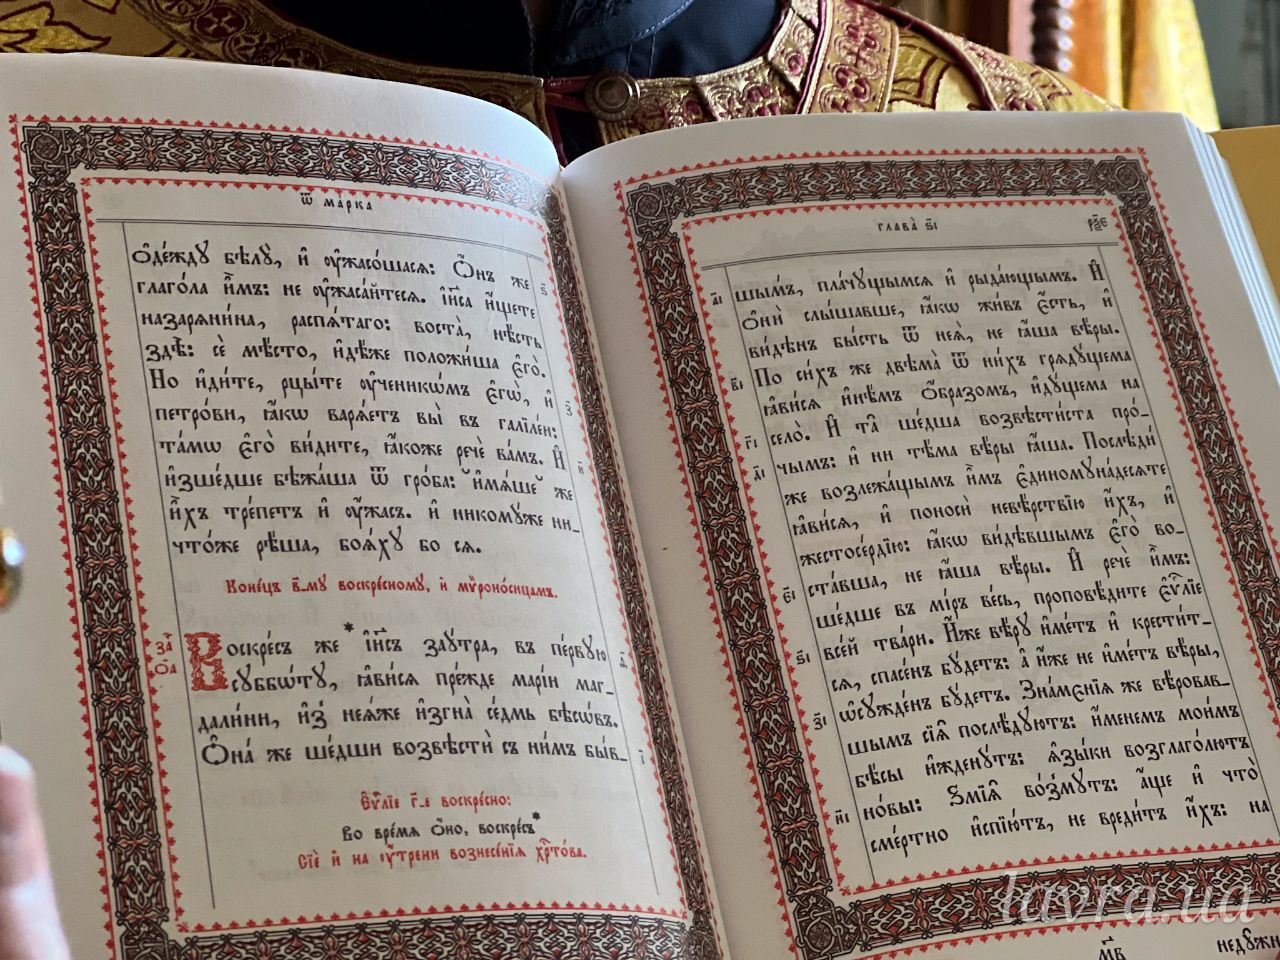 ѿ ма́рка
ѻ҆де́жду бѣлу̀, и҆ ᲂу҆жасо́шасѧ: Ѻ҆́нъ же
ѕ҃
глаго́ла и҆̀мъ: не ᲂу҆жаса́йтесѧ. і҆и҃са и҆́щете
назарѧни́на, распѧ́таго: воста̀, нѣ́сть
здѣ̀: сѐ мѣ́сто, и҆дѣ́же положи́ша є҆го̀.
Но и҆ди́те, рцы́те ᲂу҆ченикѡ́мъ є҆гѡ̀, и҆
з҃
петро́ви, ꙗ҆́кѡ варѧ́етъ вы̀ въ галїле́и:
та́мѡ є҆го̀ ви́дите, ꙗ҆́коже речѐ ва́мъ. И҆
и҃
и҆зше́дше бѣжа́ша ѿ гро́ба: и҆мѧ́ше же
и҆́хъ тре́петъ и҆ ᲂу҆́жасъ. и҆ никому́же ни-
что́же рѣ́ша, боѧ́ху бо сѧ.
Коне́цъ в҃-му воскре́сному, и҆ мѵроно́сицамъ.
за҃
ѻ҃а
Воскре́съ же * і҆и҃съ заꙋ́тра, въ пе́рвую
д҃
суббѡ́ту, ꙗ҆ви́сѧ пре́жде марі́и маг-
дали́ни, и҆з̾ неѧ́же и҆згна̀ се́дмь бѣсѡ́въ.
Ѻ҆на́ же ше́дши возвѣстѝ съ ни́мъ бы́в-
і҃
Є҆ѵⷢ҇лїе г҃-е воскре́сно:
Во вре́мѧ ѻ҆́но, воскре́съ *
Сїѐ и҆ на ᲂу҆́трени вознесе́нїѧ хрⷭ҇то́ва.
глава̀ ѕ҃і
а҃і
шымъ, пла́чущымсѧ и҆ рыда́ющымъ. И҆
ѻ҆нѝ слы́шавше, ꙗ҆́кѡ жи́въ є҆́сть, и҆
ви́дѣнъ бы́сть ѿ неѧ̀, не ꙗ҆́ша вѣ́ры.
в҃і
По си́хъ же двѣма̀ ѿ ни́хъ гряду́щема
ꙗ҆ви́сѧ и҆нѣ́мъ ѻ҆́бразомъ, и҆ду́щема на
г҃і
село̀. И҆ та̑ ше́дша возвѣсти́ста про́-
д҃і
чымъ: и҆ ни тѣ́ма вѣ́ры ꙗ҆́ша. Послѣди́
же возлежа́щымъ и҆̀мъ є҆диномуна́десѧте
ꙗ҆ви́сѧ, и҆ поносѝ невѣ́рствїю и҆́хъ, и҆
жестосе́рдїю: ꙗ҆́кѡ ви́дѣвшымъ є҆го̀ во-
ста́вша, не ꙗ҆́ша вѣ́ры. И҆ речѐ и҆̀мъ:
є҃і
ше́дше въ мі́ръ ве́сь, проповѣ́дите є҆ѵⷢ҇лїе
ѕ҃і
все́й тва́ри. И҆́же вѣ́ру и҆́метъ и҆ крести́т-
сѧ, спасе́нъ бу́детъ: а҆ и҆́же не и҆́метъ вѣ́ры,
з҃і
ѡ҆сужде́нъ бу́детъ. Зна́мєнїѧ же вѣ́ровав-
шымъ сїѧ̑ послѣ́дуютъ: и҆́менемъ мои́мъ
бѣ́сы и҆жденꙋ́тъ: ѧ҆зы́ки возглаго́лютъ
и҃і
но́вы: Ѕмїѧ̑ во́змутъ: а҆́ще и҆ что̀
сме́ртно и҆спїю́тъ, не вреди́тъ и҆́хъ: на
мⷣ҇в
неду̑жн
lavra.ua